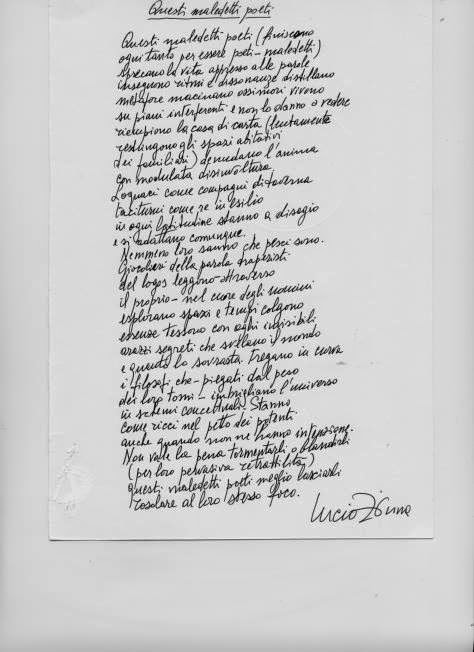 Questi maledetti poeti
Questi maledetti poeti (finiscono
ogni tanto per essere poeti-maledetti)
sprecano la vita appresso alle parole
inseguono ritmi e dissonanze distillano
metafore macinano ossimori vivono
su piani interferenti e non lo danno a vedere
riempiono la casa di carta (lentamente
restringono gli spazi abitativi
dei familiari) denudano l'anima
con modulata disinvoltura.
Loquaci come compagni di taverna
taciturni come re in esilio
in ogni latitudine stanno a disagio
e si adattano comunque.
Nemmeno loro sanno che pesci sono.
Giocolieri della parola trapezisti
del logos leggono - attraverso
il proprio - nel cuore degli uomini
esplorano spazi e tempi colgono
essenze tessono con aghi invisibili
arazzi segreti che svelano il mondo
e quanto lo sovrasta. Fregano in curva
i filosofi che - piegati dal peso
dei loro tomi - imbrigliano l'universo
in schemi concettuali. Stanno
come ricci nel petto dei potenti
anche quando non ne hanno intenzione.
Non vale la pena tormentarli o blandirli
(per loro pervasiva retrattilità)
questi maledetti poeti meglio lasciarli
rosolare al loro stesso foco.
Lucio Zinna